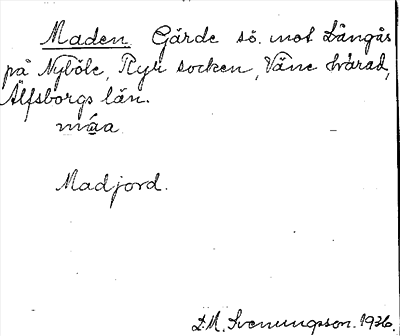 Maden Gärde sö. mot Långås
på Nyböle, Ryr socken, Väne härad,
Älfsborgs län.
máa
Madjord.
D.M. Svenungson. 1926.